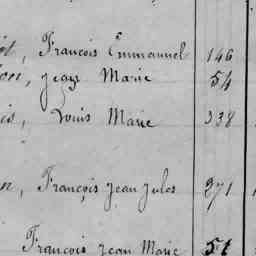 François Emmanuel 146
Jean Marie 54
Louis Marie 338
François Jean Jules 371
François Jean Marie 51